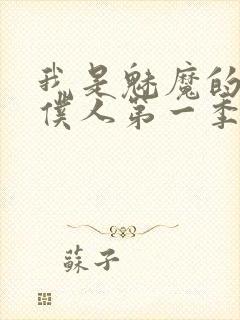 我是魅魔的
僕人第一季
蘇子